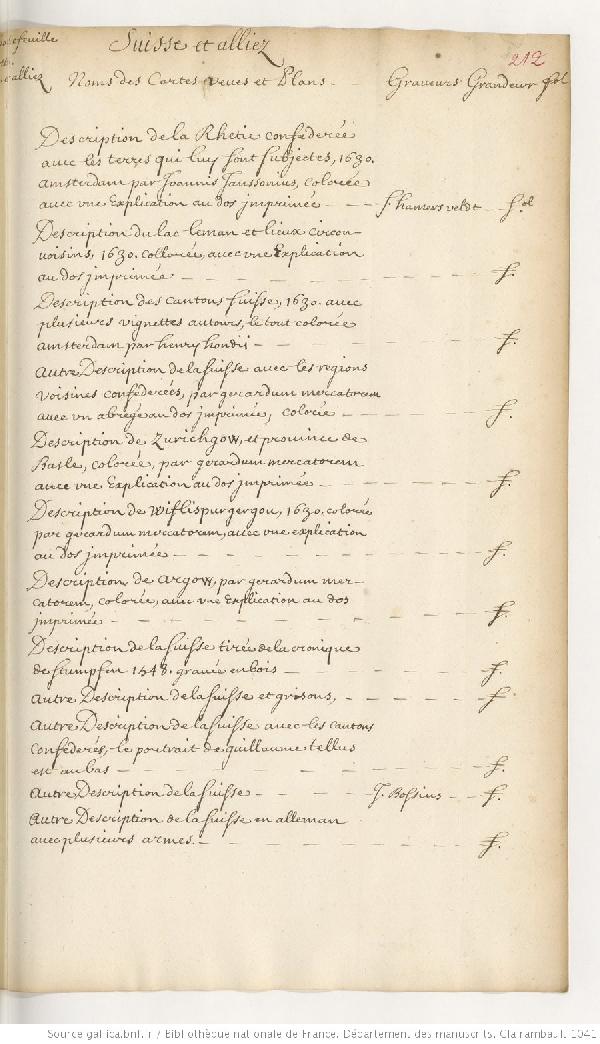 Suisse et alliez
212
portefeuille
et alliez
Noms des Cartes veues et Plans - Graveurs Grandeur fol
Description de la Rhetie confederée
avec les terres qui luy sont subjectes, 1630.
amsterdam par Joannis Janssonius, colorée
avec vne Explication au dos jmprimée - - - S. hamersveldt - fol
Description du lac leman et lieux circon-
uoisins, 1630. collorée, avec vne Explication
au dos jmprimée - - - f.
Description des cantons suisse, 1630. avec
plusieurs vignettes autours, le tout colorée
amsterdam par henry hondis - - - f.
autre Description de la suisse avec les regions
voisines confederées, par gerardum mercatorem
avec vn abregé au dos jmprimée, colorée - - - f.
Description de Zurichgow, et prouince de
Basle, colorée, par gerardum mercatorem
avec vne Explication au dos jmprimée - - - f.
Description de wiflispurgergou, 1630. colorée
par gerardum mercatorem, avec vne explication
au dos jmprimée - - - f.
Description de argow, par gerardum mer-
catorem, colorée, avec vne Explication au dos
jmprimée - - - f.
Description de la suisse tirée de la cronique
de stumpfen 1548. grauée en bois - - - f.
autre Description de la suisse et grisons, - - - f.
autre Description de la suisse avec les cantons
confederés, le portrait de guillaume tellus
est au bas - - - f.
autre Description de la suisse - - - J. Bossius - - f.
autre Description de la suisse en alleman
avec plusieurs armes. - - - f.
Source gallica.bnf.fr / Bibliothèque nationale de France. Département des manuscrits. Clairambault 1041